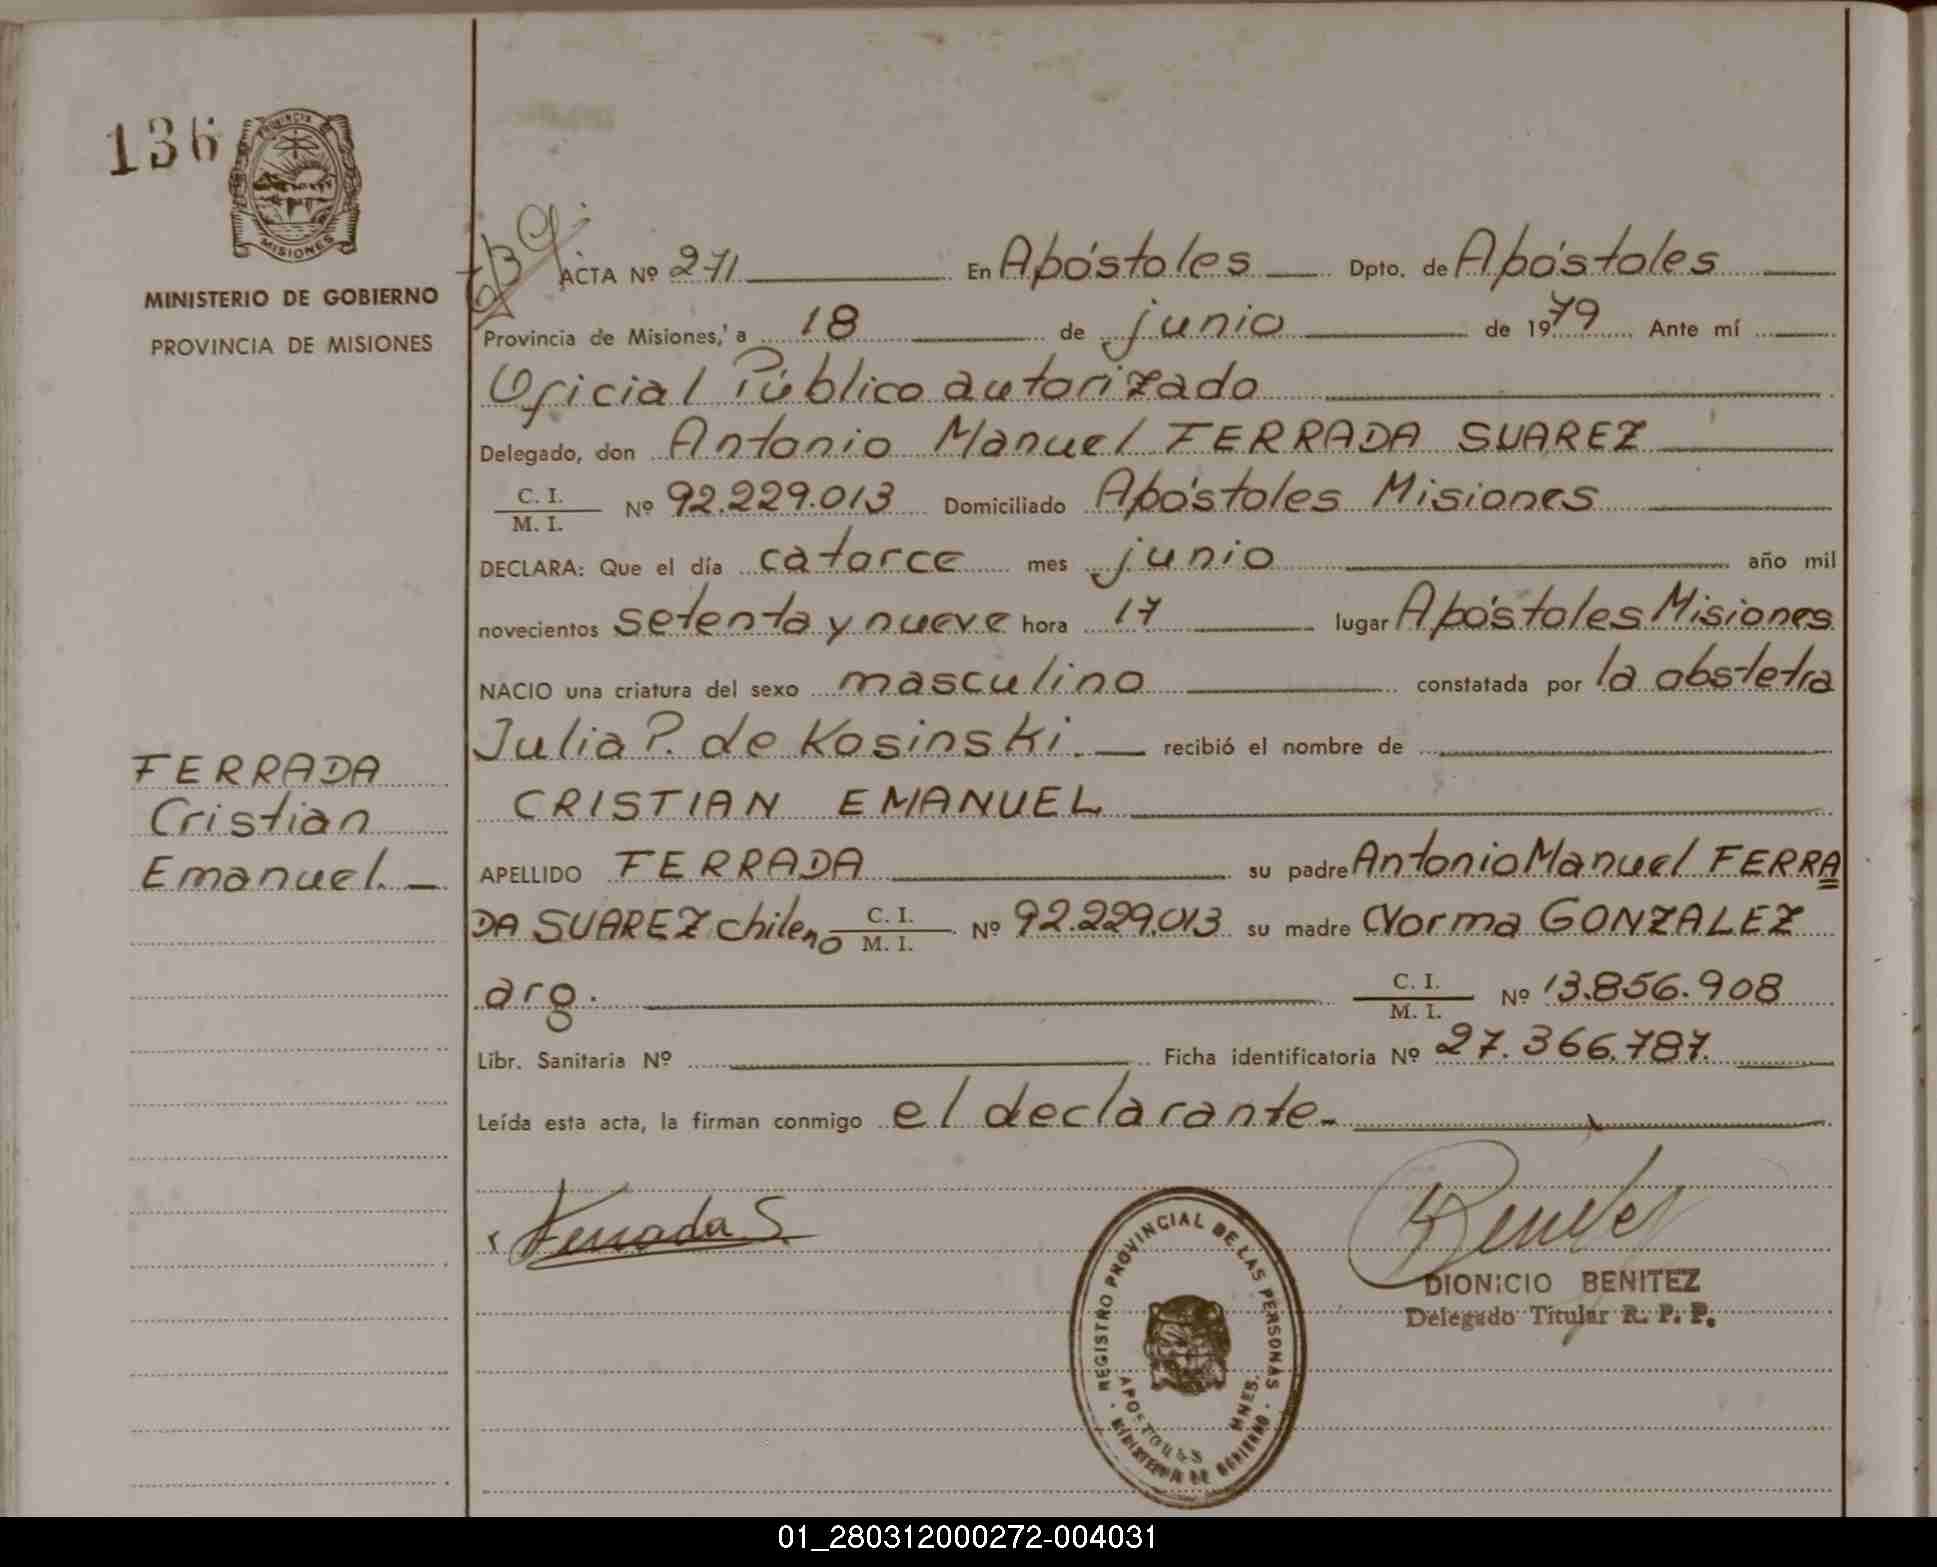 136
PROVINCIA DE
MISIONES
MINISTERIO DE GOBIERNO
PROVINCIA DE MISIONES
ACTA Nº 271 En Apóstoles Dpto. de Apóstoles
Provincia de Misiones, a 18 de junio de 1979 Ante mí
Oficial Público autorizado
Delegado, don Antonio Manuel FERRADA SUAREZ
C. I.
M. I. Nº 92.229.013 Domiciliado Apóstoles Misiones
DECLARA: Que el día catorce mes junio año mil
novecientos setenta y nueve hora 17 lugar Apóstoles Misiones
NACIO una criatura del sexo masculino constatada por la obstetra
Julia P. de Kosinski. recibió el nombre de
CRISTIAN EMANUEL
APELLIDO FERRADA su padre Antonio Manuel FERRA
DA SUAREZ chileno C. I. M. I. Nº 92.229.013 su madre Norma GONZALEZ
arg. C. I. M. I. Nº 13.856.908
Libr. Sanitaria Nº Ficha identificatoria Nº 27.366.787.
Leída esta acta, la firman conmigo el declarante.-
FERRADA
Cristian
Emanuel.
Ferrada S.
REGISTRO PROVINCIAL DE LAS PERSONAS
APOSTOLES MNES.
MINISTERIO DE GOBIERNO
DIONICIO BENITEZ
Delegado Titular R. P. P.
01_280312000272-004031